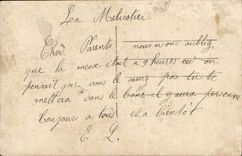 La Melicotier
Cher Parents nous avons oublié
que la messe était a 9 heures ou on
pensait que vous le aurez pas lu te
mettera dans le banc et y aura personne
bonjours a tous et a bientôt
E L.